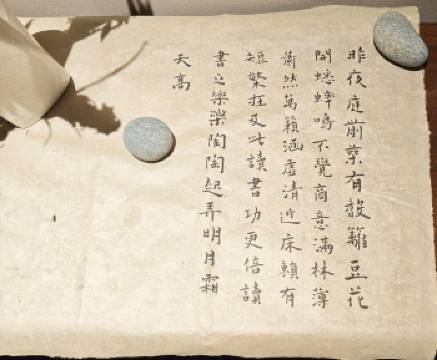 昨夜庭前葉有聲籬豆花
開蟋蟀鳴不覺商意滿林薄
蕭然萬籟涵虛清近床賴有
短檠在及此讀書功更倍讀
書之樂樂陶陶起弄明月霜
天高